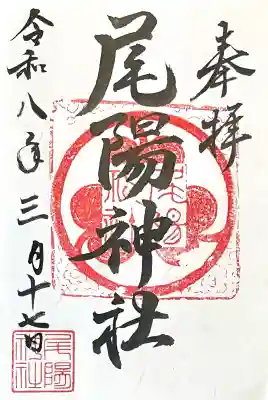 奉拝
尾陽神社
令和八年三月十七日
尾陽
神社